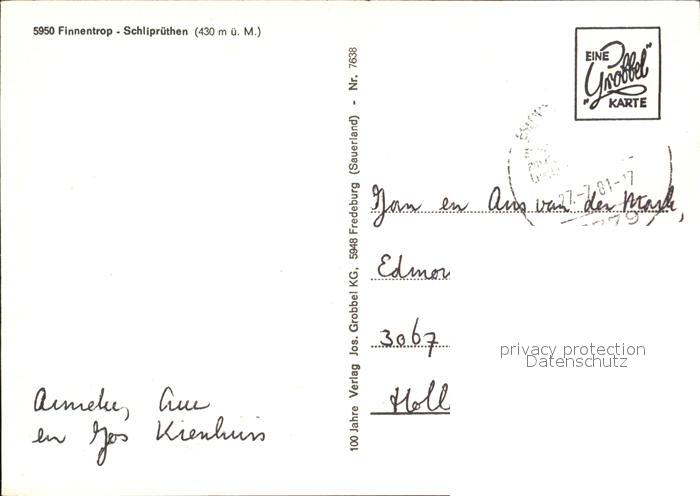 5950 Finnentrop - Schliprüthen (430 m ü. M.)
Anneke,
en Jos Kienhuis
100 Jahre Verlag Jos. Grobbel KG, 5948 Fredeburg (Sauerland) - Nr. 7638
EINE
"Grobbel"
KARTE
27.-7.81-17
779
en Ans van der
Edmon
3067
Holl
privacy protection
Datenschutz